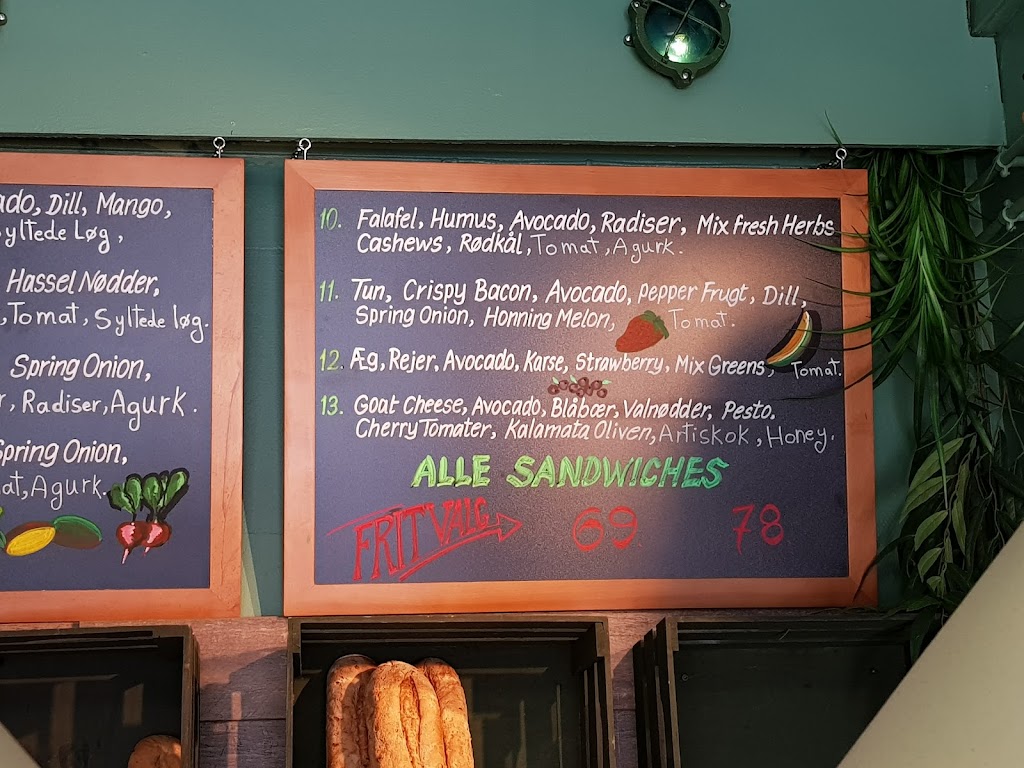 ado, Dill, Mango,
Syltede Løg,
Hassel Nødder,
, Tomat, Syltede løg.
Spring Onion,
r, Radiser, Agurk.
Spring Onion,
at, Agurk.
10. Falafel, Humus, Avocado, Radiser, Mix fresh Herbs
Cashews, Rødkål, Tomat, Agurk.
11. Tun, Crispy Bacon, Avocado, pepper Frugt, Dill,
Spring Onion, Honning Melon, Tomat.
12. Æg, Rejer, Avocado, Karse, Strawberry, Mix Greens, Tomat.
13. Goat Cheese, Avocado, Blåbær, Valnødder, Pesto.
Cherry Tomater, Kalamata Oliven, Artiskok, Honey.
ALLE SANDWICHES
FRIT VALG 69 78